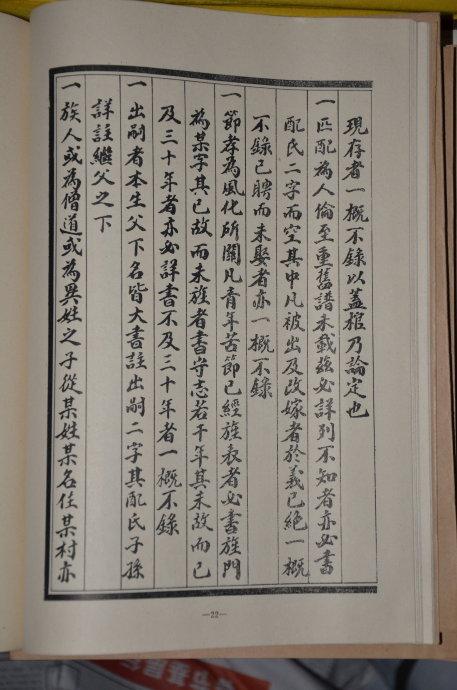 現存者一概不錄以蓋棺乃論定也
一匹配為人倫至重舊譜未載茲必詳列不知者亦必書
配氏二字而空其中凡被出及改嫁者於義已絕一概
不錄已聘而未娶者亦一概不錄
一節孝為風化所關凡青年苦節已經旌表者必書旌門
為某字其已故而未旌者書守志若干年其未故而已
及三十年者亦必詳書不及三十年者一概不錄
一出嗣者本生父下名皆大書註出嗣二字其配氏子孫
詳註繼父之下
一族人或為僧道或為異姓之子從某姓某名住某村亦
—22—